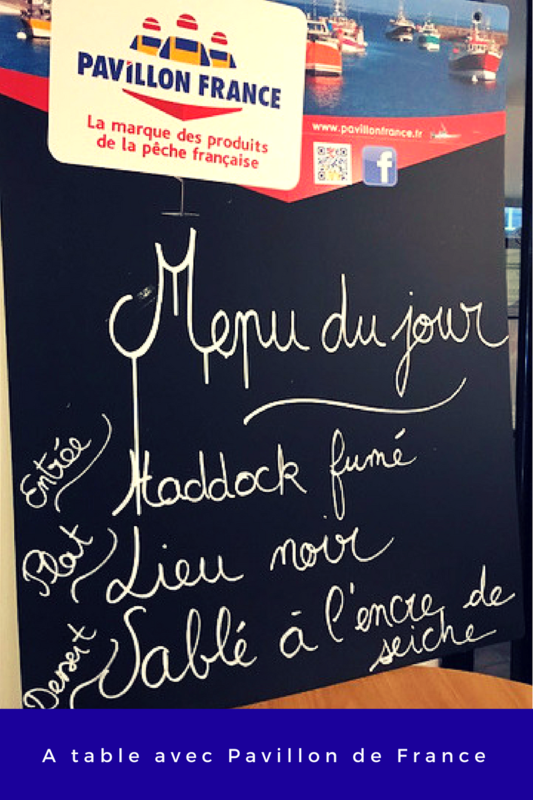 PAVILLON FRANCE
La marque des produits
de la pêche française
www.pavillonfrance.fr
f
Menu du jour
Entrée
Haddock fumé
Plat
Lieu noir
Dessert
Sablé à l'encre de
seiche
A table avec Pavillon de France